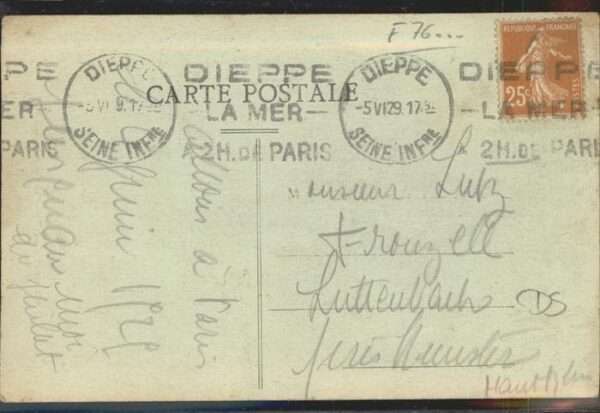 F 76...
REPUBLIQUE FRANÇAISE
25c
POSTES
DIEPPE
-5 VI 29. 17
SEINE INFRE
DIEPPE
LA MER
2H. DE PARIS
DIEPPE
-5 VI 29. 17
SEINE INFRE
DIEPPE
LA MER
2H. DE PARI
PE
ER
PARIS
CARTE POSTALE
Monsieur Lutz
Luttenbach
près Munster
Haut Rhin
DS
à Paris
Juin 1929
de Juillet